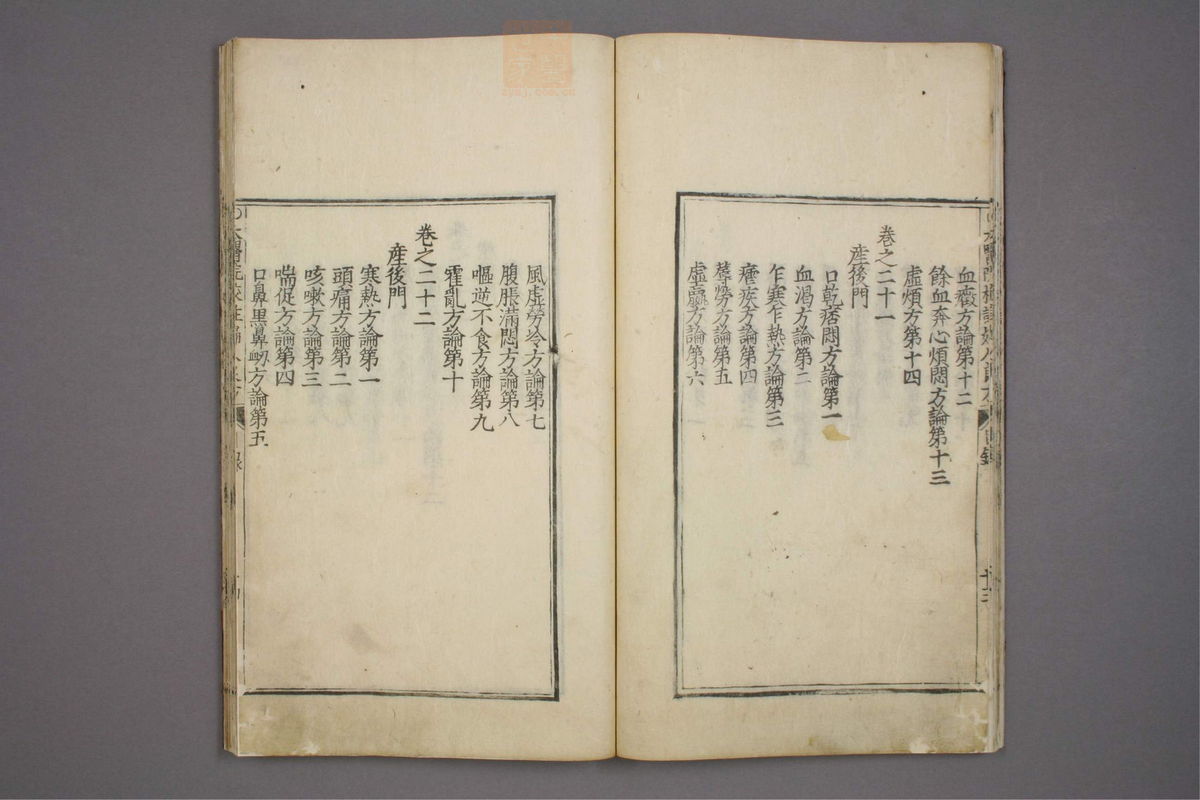 血癥方論第十二
餘血奔心煩悶方論第十三
虛煩方第十四
卷之二十一
産後門
口乾痞悶方論第一
血渴方論第二
乍寒乍熱方論第三
瘧疾方論第四
蓐勞方論第五
虛羸方論第六
風虛勞冷方論第七
腹脹滿悶方論第八
嘔逆不食方論第九
霍亂方論第十
卷之二十二
産後門
寒熱方論第一
頭痛方論第二
咳嗽方論第三
喘促方論第四
口鼻黑鼻衂方論第五